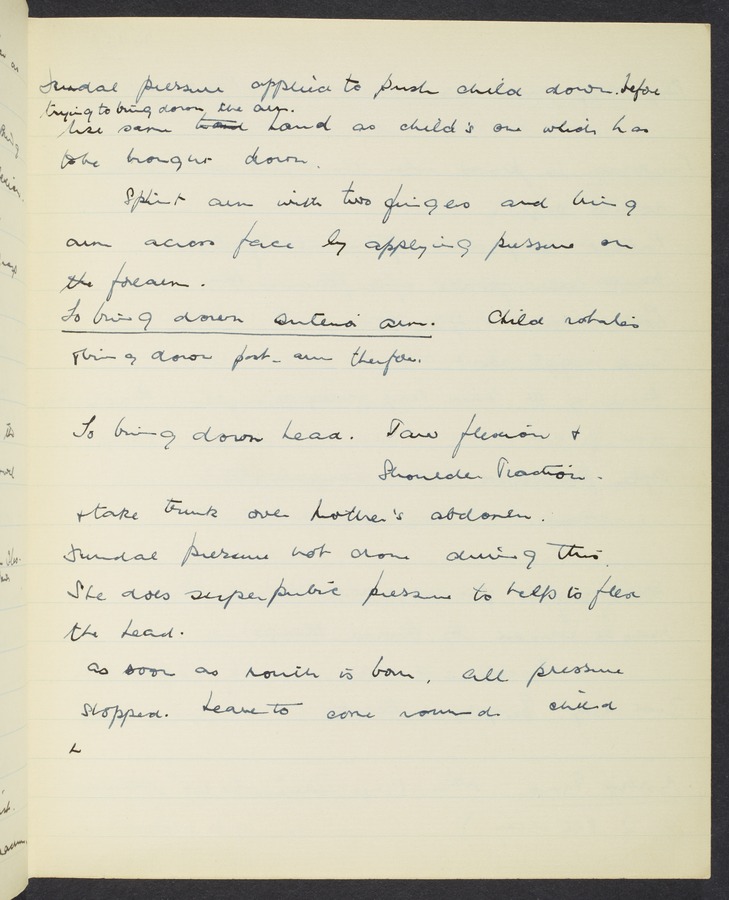 Fundal pressure applied to push child down. before
trying to bring down the arm.
Use same hand hand as child's one which has
to be brought down.
Splint arm with two fingers and bring
arm across face by applying pressure on
the forearm.
To bring down anterior arm. Child rotates
+ bring down post- arm therefor.
To bring down head. Jaw flexion +
Shoulder Traction.
+ take trunk over mother's abdomen.
Fundal pressure not done during this.
She does superpubic pressure to help to flex
the head.
as soon as mouth is born, all pressure
stopped. Leave to come round child